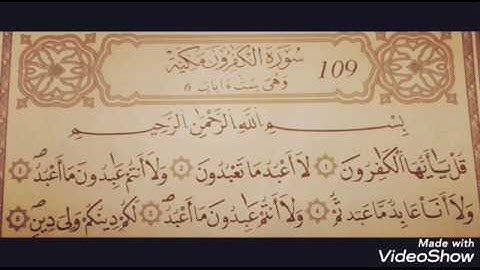 سورة الكافرون مكية 109
وهي ست ءايات 6
بسم الله الرحمن الرحيم
قل يأيها الكفرون ١ لا أعبد ما تعبدون ٢ ولا أنتم عبدون ما أعبد ٣
ولا أنا عابد ما عبدتم ٤ ولا أنتم عبدون ما أعبد ٥ لكم دينكم ولي دين ٦
Made with
VideoShow